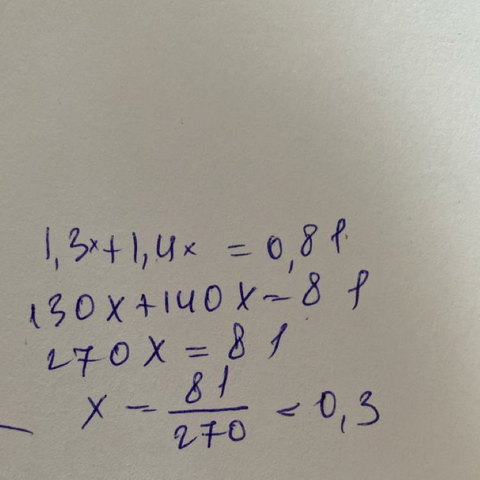 1,3x+1,4x = 0,81
130x+140x=81
270x = 81
x = 81/270 = 0,3